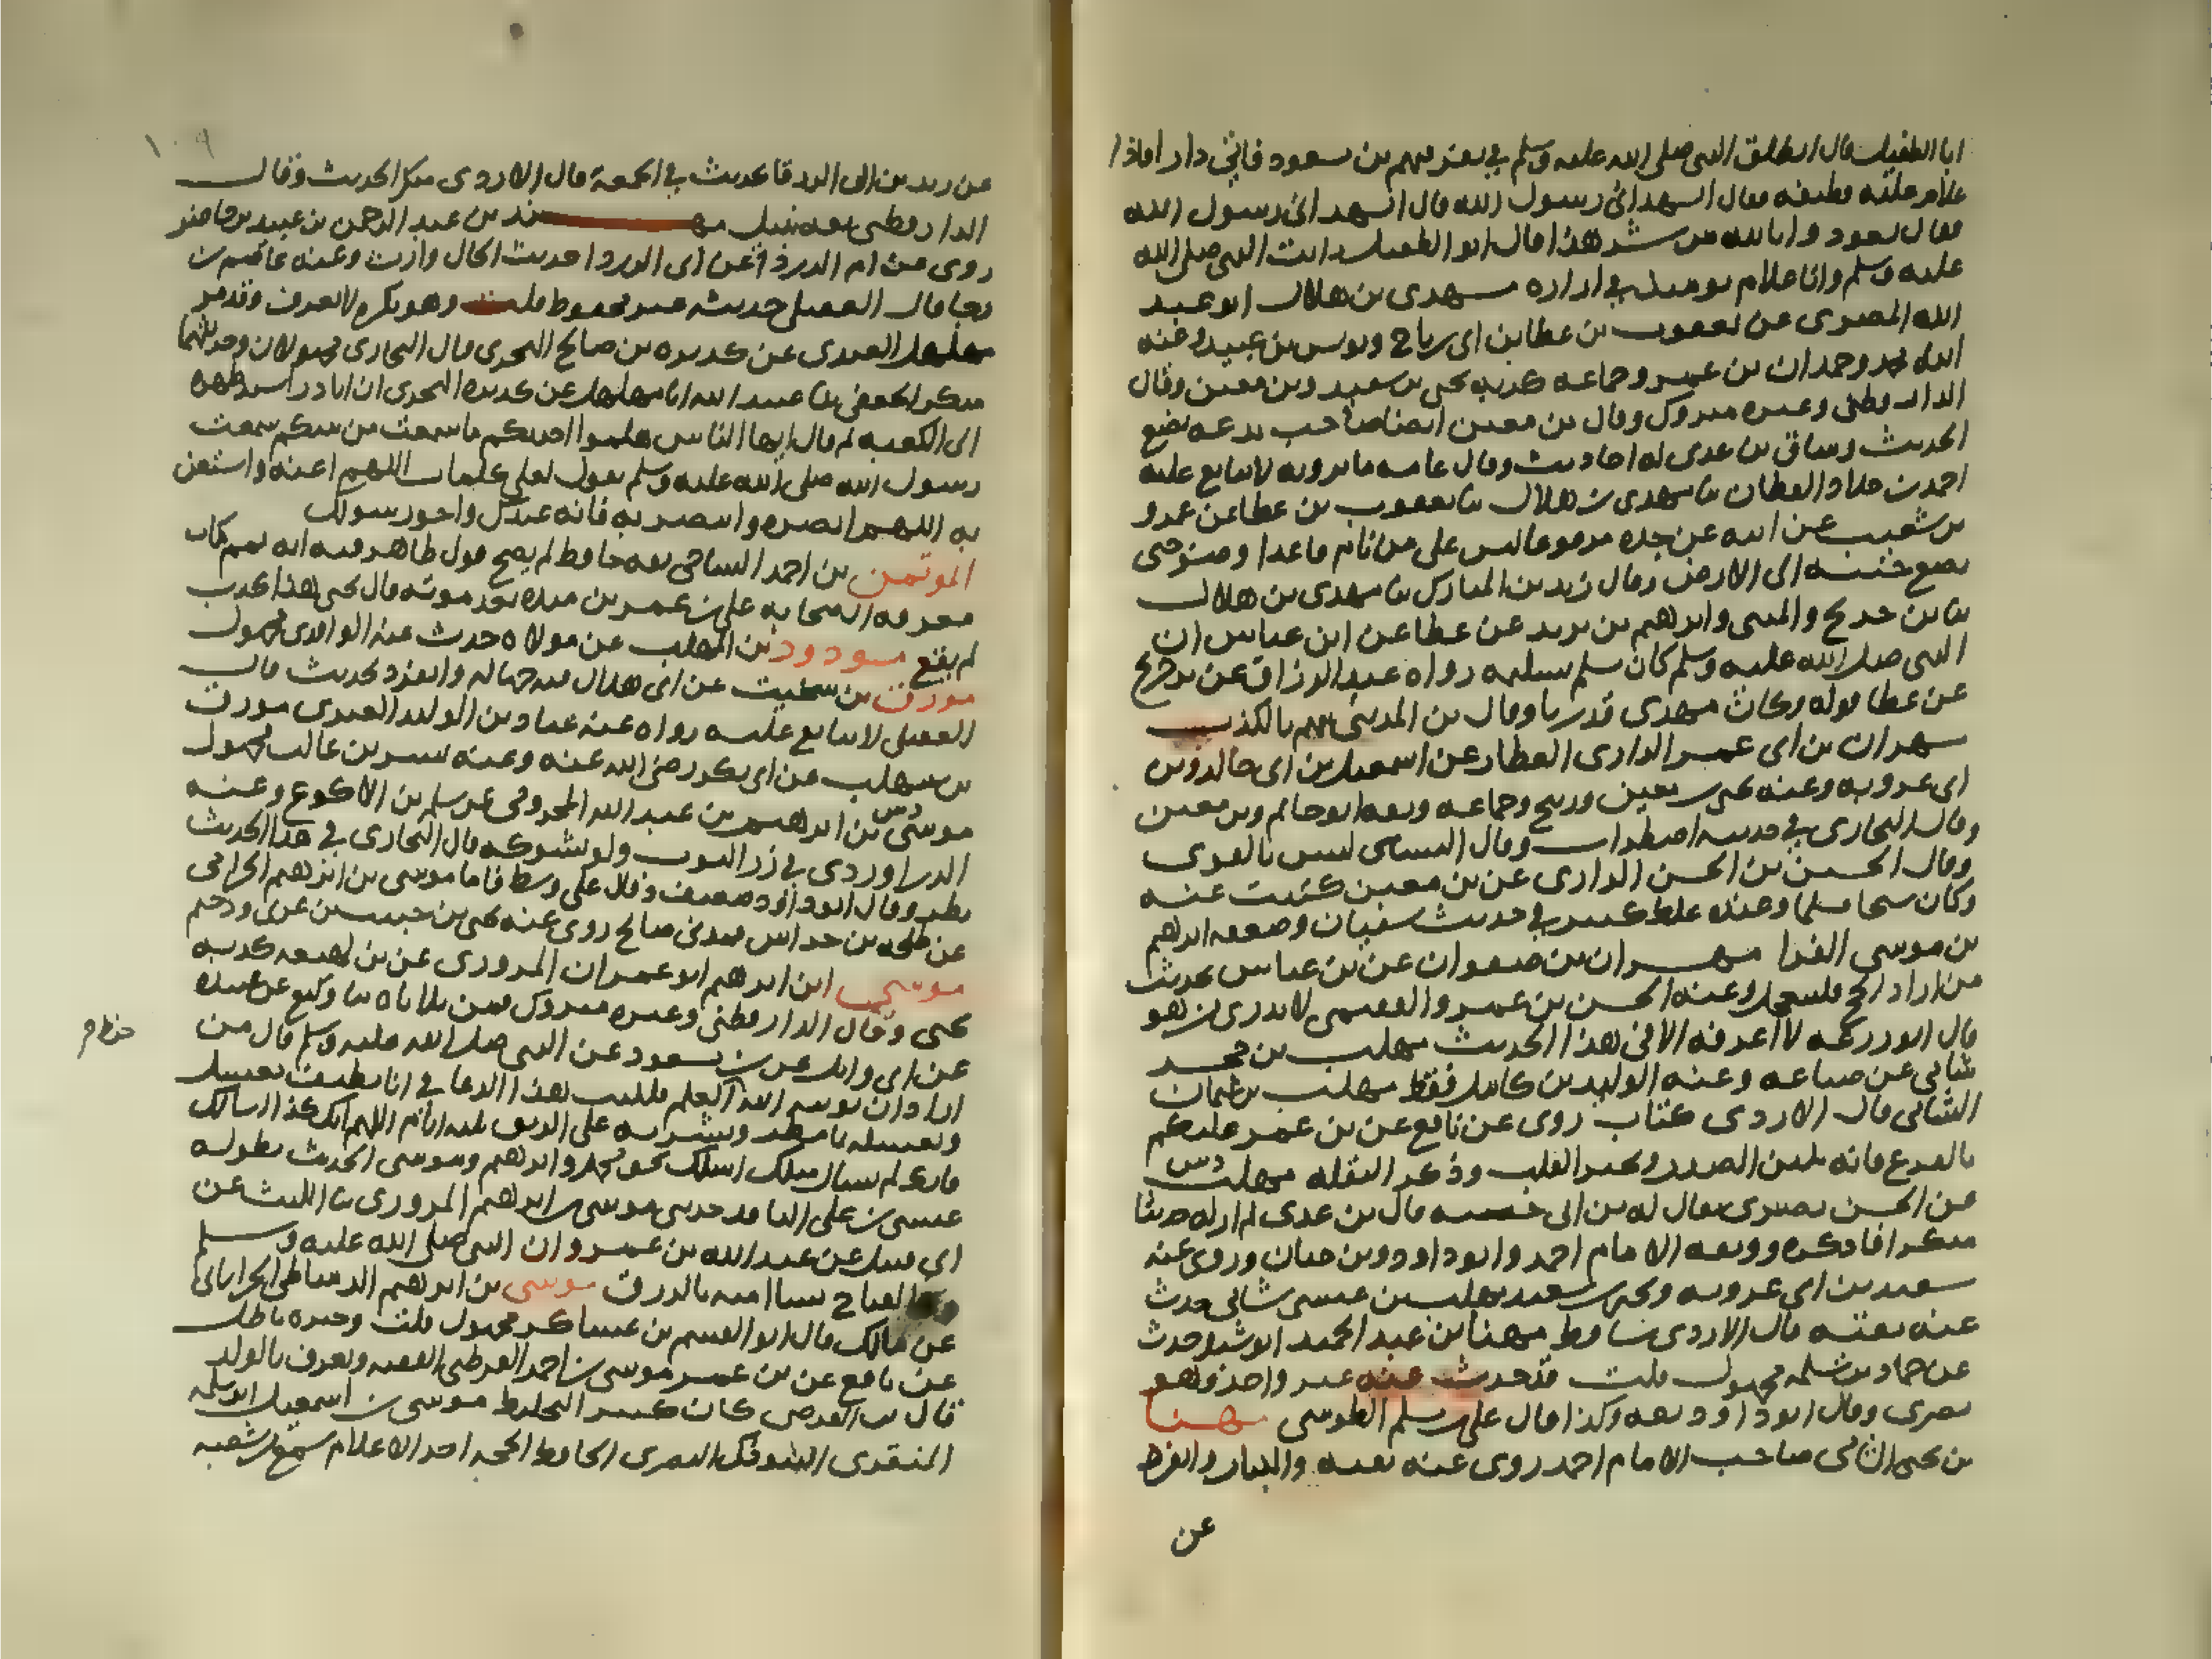 ابا الطفيل قال انطلق النبي صلى الله عليه وسلم في نفر منهم بن مسعود فاتى دارا فاذا
غلام عليه قطيفه فقال اتشهد اني رسول الله قال اتشهد اني رسول الله
فقال نعوذ بالله من شر هذا قال ابو الطفيل رايت النبي صلى الله
عليه وسلم وانا غلام يوميذ في ازاره مهدي بن هلال ابو عبد
الله المصرى عن يعقوب بن عطا بن ابي رباح ويونس بن عبيد وعنه
ابنه محمد وحمدان بن عمر وجماعه كذبه يحيى بن سعيد وبن معين وقال
الدارقطنى وغيره متروك وقال بن معين ايضا صاحب بدعه يضع
الحديث وساق بن عدى له احاديث وقال عامه ما يرويه لا يتابع عليه
احمد بن خلاد القطان ثنا مهدى بن هلال ثنا يعقوب بن عطا عن عمرو
بن شعيب عن ابيه عن جده مرفوعا ليس على من نام قاعدا وضو حتى
يضع جنبه الى الارض وقال زيد بن المبارك ثنا مهدى بن هلال
ثنا بن جريج والمثنى وابرهيم بن يزيد عن عطا عن ابن عباس ان
النبى صلى الله عليه وسلم كان يسلم تسليمه رواه عبد الرزاق عن بن جريج
عن عطا قوله وكان مهدى قدريا وقال بن المدينى يتهم بالكذب
مهران بن ابى عمر الرازى العطار عن اسمعيل بن ابى خالد وبن
ابى عروبه وعنه يحيى بن معين وجماعه وثقه ابو حاتم وبن معين
وقال البخارى في حديثه اضطراب وقال النسائى ليس بالقوى
وقال الحسين بن الحسن الرازى عن بن معين كتبت عنه
وكان شيخا مسلما وعنده غلط كثير في حديث سفيان وضعفه ابرهيم
بن موسى الفرا مهران بن صفوان عن بن عباس بحديث
من اراد الحج فليتعجل وعنه الحسن بن عمرو الفقيمى لا يدرى من هو
قال ابو زرعه لا اعرفه الا في هذا الحديث مهلب بن حجر
شامى عن ضباعه وعنه الوليد بن كامل فقط مهلب بن عثمان
الشامى قال الازدى كذاب روى عن نافع عن بن عمر عليكم
بالقرع فانه يلين الصدر ويكبر القلب وذكر البقله مهلب
عن الحسن بصرى يقال له بن ابى حبيبه قال بن عدى لم ار له حديثا
منكرا فاذكره ووثقه الامام احمد وابو داود وبن حبان وروى عنه
سعيد بن ابى عروبه ويحيى بن سعيد مهلب بن عيسى شامى حدث
عنه بقيه قال الازدى ساقط مهنا بن عبد الحميد ابو شبل حدث
عن حماد بن سلمه مجهول قلت قد حدث عنه غير واحد وهو
بصرى وقال ابو داود ثقه وكذا قال على بن مسلم الطوسى مهنا
بن يحيى الشامى صاحب الامام احمد روى عنه بقيه والكبار وانفرد
عن
١٠٩
عن زيد بن ابى الزرقا بحديث في الجمعة قال الازدى منكر الحديث وقال
الدارقطنى ثقه نبيل مهند بن عبد الرحمن بن عبيد بن حاضر
روى عن ام الدردا عن ابى الدردا حديث الخال وارث وعنه عاصم بن
رجا قال العقيلى حديثه غير محفوظ قلت وهو نكره لا يعرف وقد مر
مهلهل العبدى عن كديره بن صالح الهجرى قال البخارى مجهولان وحديثهما
منكر الجعفى ثنا عبيد الله انا مهلهل عن كديره الهجرى ان ابا ذر اسند ظهره
الى الكعبه ثم قال ايها الناس هلموا احدثكم ما سمعت من نبيكم سمعت
رسول الله صلى الله عليه وسلم يقول لعلى كلمات اللهم اعنه واستعن
به اللهم انصره وانتصر به فانه عبدك واخو رسولك
الموتمن بن احمد الساجى ثقه حافظ لم يصح قول طاهر فيه انه تمم كتاب
معرفه الصحابه على بن عمر بن منده بعد موته قال يحيى هذا كذب
لم يقع مودود بن المهلب عن مولاه حدث عنه الواقدى مجهول
مورق بن سخيت عن ابى هلال فيه جهاله وانفرد بحديث قال
العقيلى لا يتابع عليه رواه عنه عباد بن الوليد الغبرى مورق
بن مهلب عن ابى بكر رضى الله عنه وعنه بشر بن غالب مجهول
موسى بن ابرهيم بن عبد الله المخزومى عن سلمه بن الاكوع وعنه
الدراوردى في زر الثوب ولو بشوكه قال البخارى في هذا الحديث
نظر وقال ابو داود ضعيف وقال على وسط فاما موسى بن ابرهيم الحرامى
عن طلحه بن خراش فمدنى صالح روى عنه يحيى بن حبيب بن عربى ودحيم
موسى ابن ابرهيم ابو عمران المروزى عن بن لهيعه كذبه
يحيى وقال الدارقطنى وغيره متروك فمن بلاياه ثنا وكيع عن عبيده
عن ابى وايل عن بن مسعود عن النبى صلى الله عليه وسلم قال من
اراد ان يوتيه الله العلم فليكتب هذا الدعا في انا نظيف بعسل
ويغسله بما مطر ويشربه على الريق ثلثه ايام اللهم انك
موسى الحديث بطوله
عيسى بن على الناقد حدثنى موسى بن ابرهيم المروزى ثنا الليث عن
عن عبد الله بن عمرو ان النبى صلى الله عليه وسلم
موسى بن ابرهيم الدمياطى الخراسانى
عن مالك قال ابو القسم بن عساكر مجهول قلت وخبره باطل
عن نافع عن بن عمر موسى بن احمد القرطبى الفقيه ويعرف بالولد
قال بن الفرضى كان كثير التخليط موسى بن اسمعيل ابو سلمه
المنقرى التبوذكى البصرى الحافظ الحجه احد الاعلام سمع من شعبه